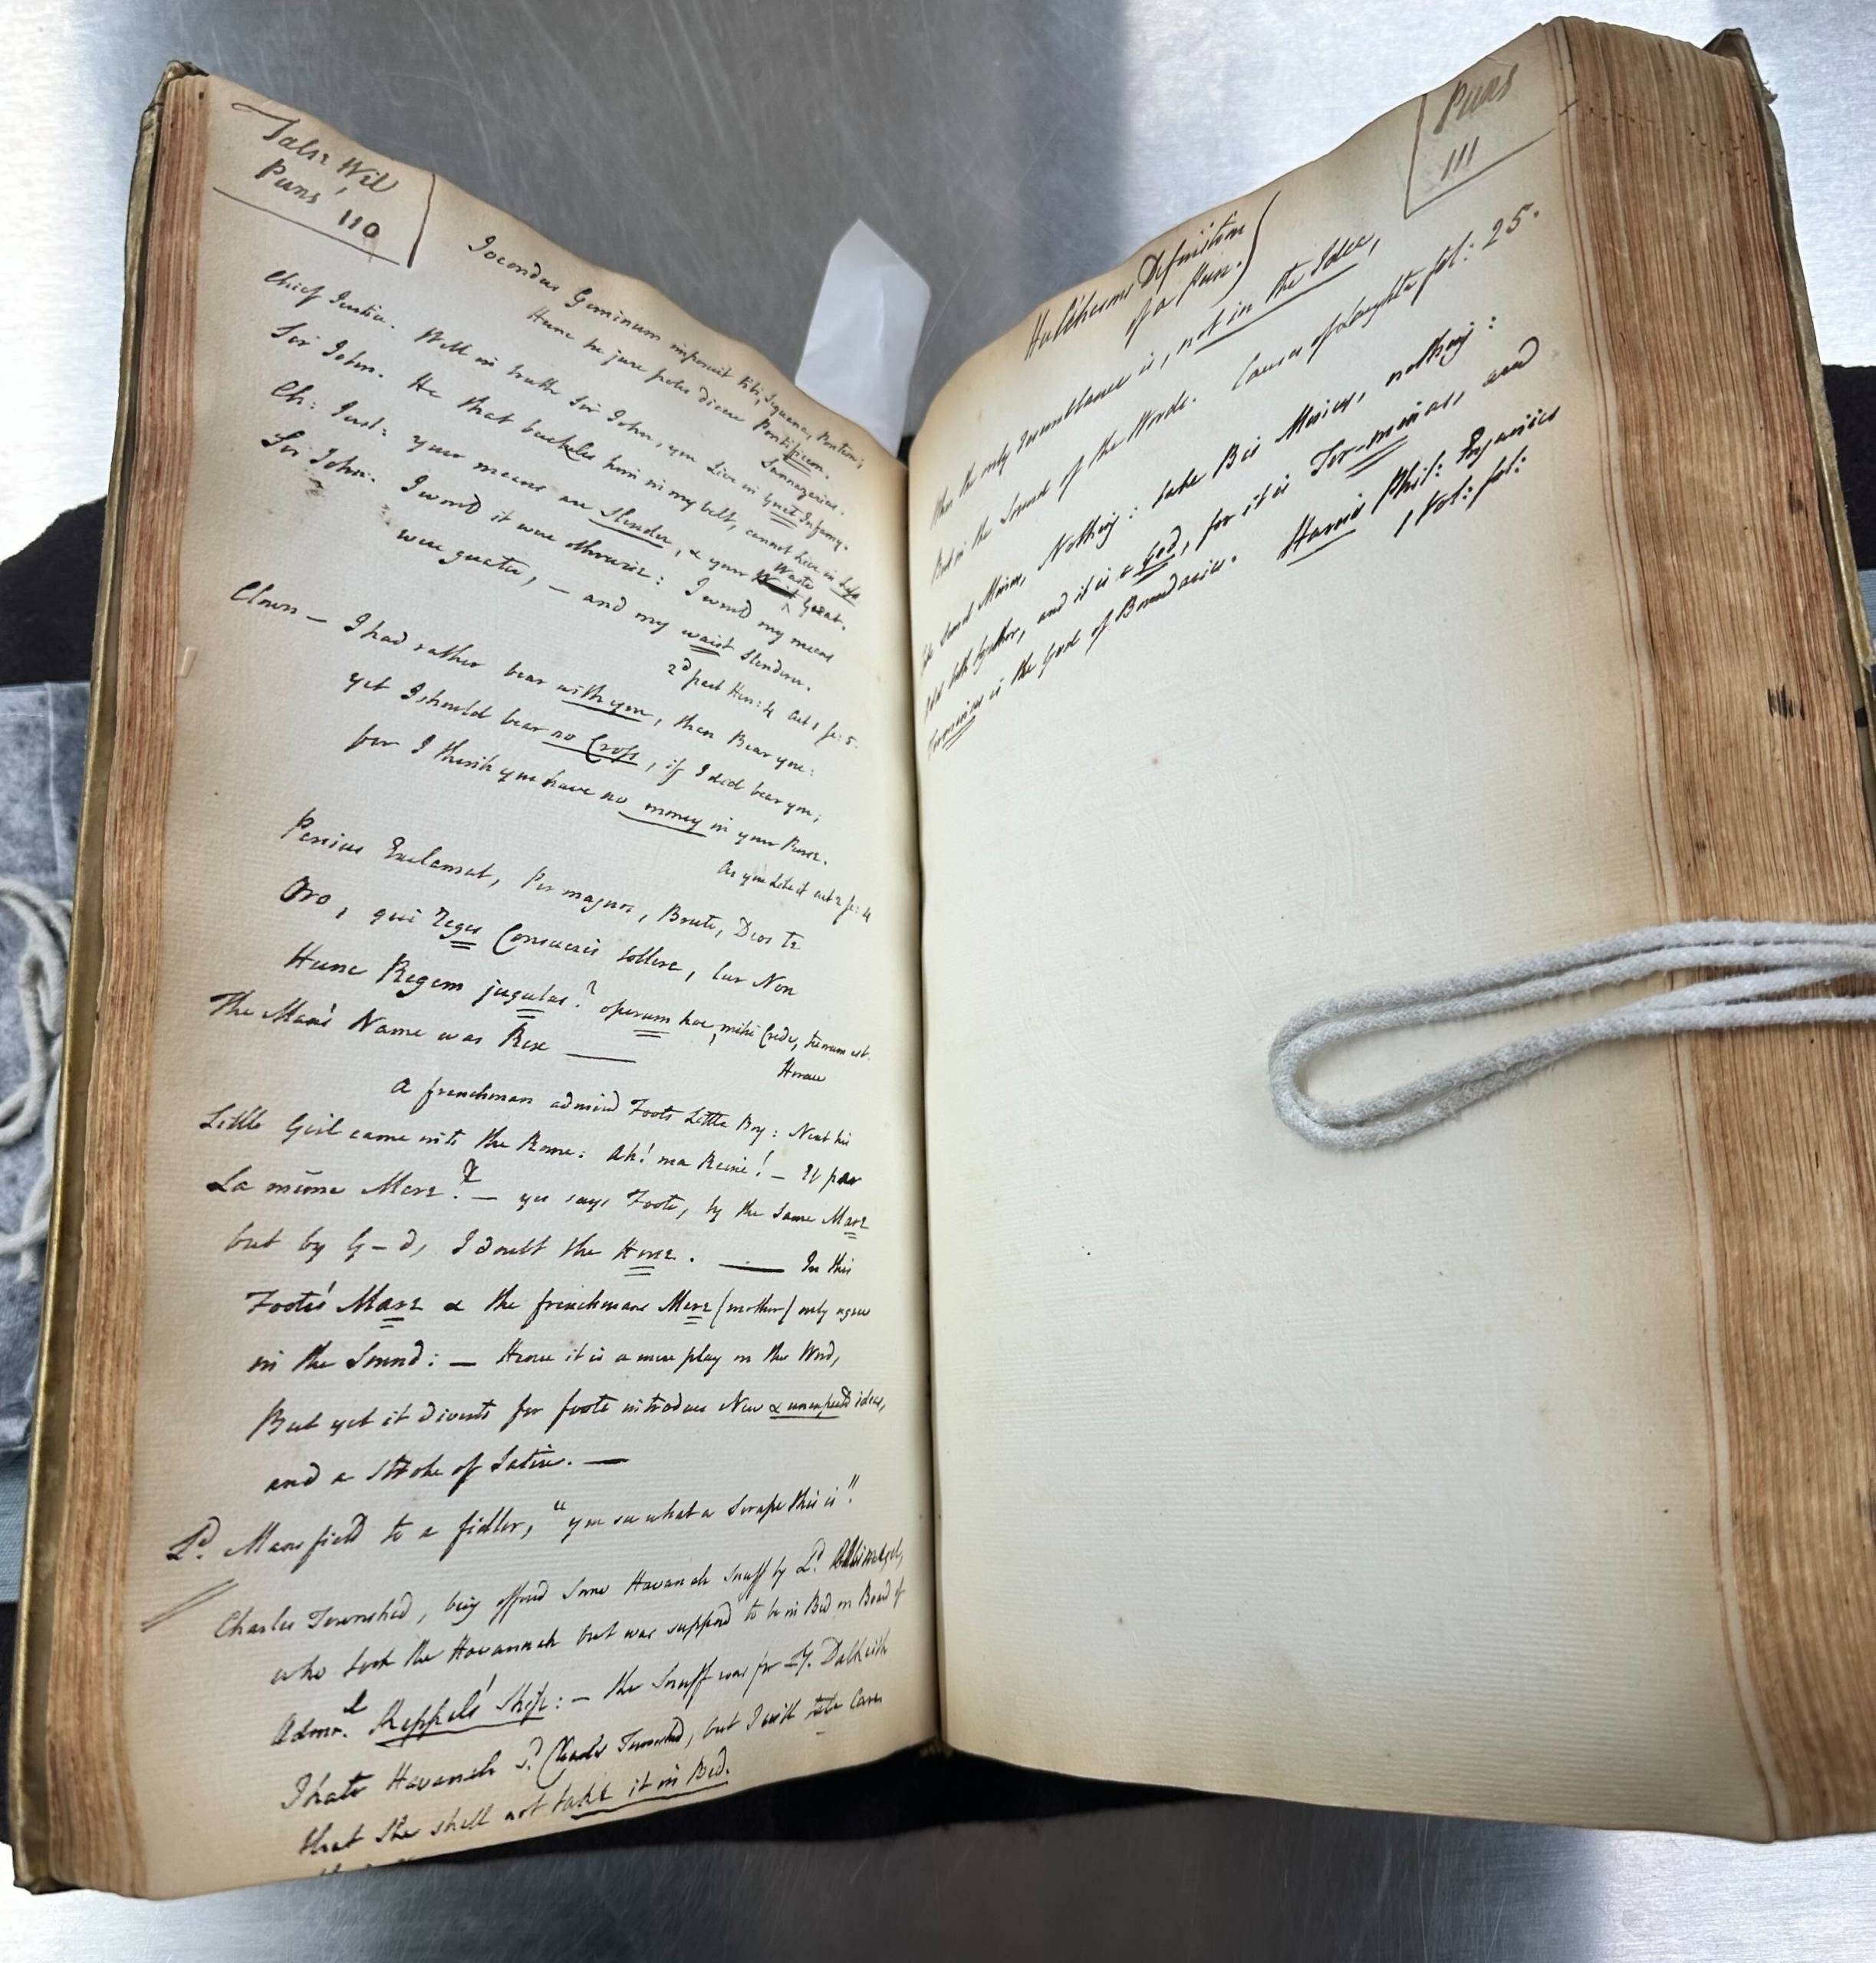 False Wit
Puns, 110
Jocondus Geminum imposuit tibi, Sequana, Pontem;
Hunc tu jure potes dicere Pontificem.
Sannazarius.
Chief Justice. Well in truth Sir John, you live in great Infamy.
Sir John. He that buckles him in my belt, cannot live in Less
Ch: Just: your means are slender, & your Waste great.
Sir John. I would it were otherwise: I would my means
were greater, – and my waist slenderer.
2d part Hen: 4 act 1 sc: 5.
Clown – I had rather bear with you, then Bear you:
yet I should bear no Cross, if I did bear you,
for I think you have no money in your Purse.
As you like it act 2 sc: 4
Persius Exclamat, Per magnos, Brute, Deos te
Oro, qui Reges Consueris tollere, Cur Non
Hunc Regem jugulas? operum hoc, mihi Crede, tuorum est.
Horace
The Man's Name was Rex —
A frenchman admired Foots Little Boy: Next his
Little Girl came into the Rome: Ah! ma Reine! – Et par
La même Mere? – yes says Foote, by the same Mare
but by G–d, I doubt the Horse. — In this
Foote's Mare & the frenchmans Mere (mother) only agree
in the Sound: – Hence it is a mere play on the Word,
But yet it diverts for foote introduces New & unexpected ideas,
and a Stroke of Satire. —
Ld. Mansfield to a fidler, "you see what a Scrape this is".
Charles Townshed, being offered some Havanah Snuff by Ld. Albimarle,
who took the Havannah but was supposed to be in Bed on Board of
Admr.l Keppels' Ship: – the Snuff was for Ly. Dalkeith
I hate Havanah sd. Charles Townshed, but I will take Care
that she shall not take it in Bed.
Puns
111
Hutchesons Definition
of a Pun.)
When the only resemblance is, not in the Idea,
But in the Sound of the Words. Causes of Laughter fol: 25.
Nothing: take Bis Minus, nothing:
Add both together, and it is a God, for it is Ter-minus, and
Terminus is the God of Boundaries. Harris Phil: Enquiries
1 Vol: fol: